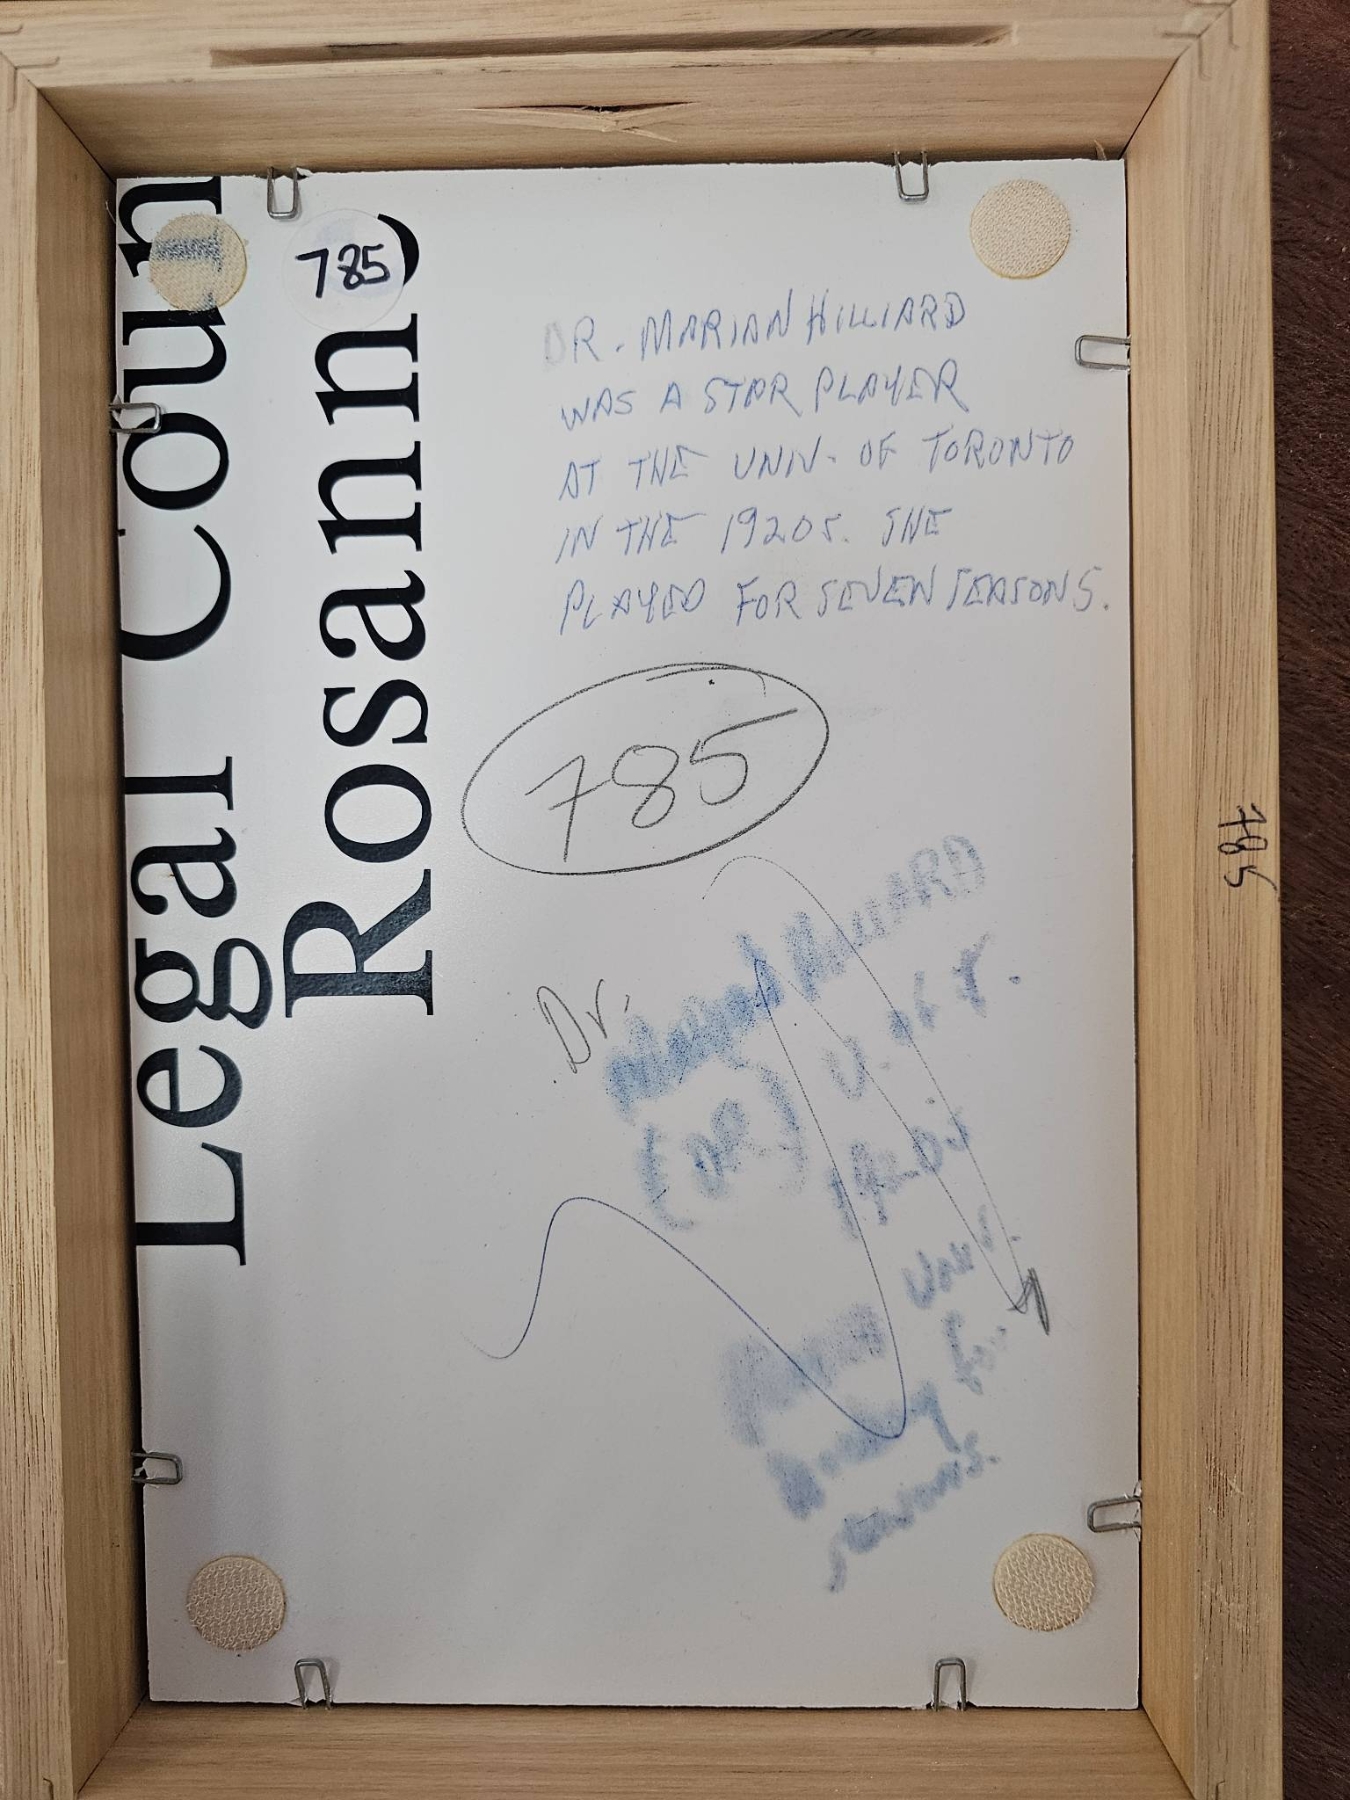 Legal Coun
Rosann
785
DR. MARIAN HILLIARD
WAS A STAR PLAYER
AT THE UNIV. OF TORONTO
IN THE 1920S. SHE
PLAYED FOR SEVEN SEASONS.
785
785
Dr.
Marian HILLIARD
(DR) U. of T.
1920s
Univ.
hockey for
seasons.